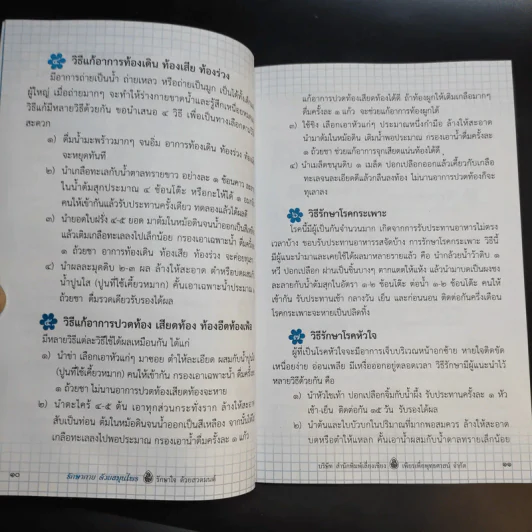 ๔ วิธีแก้อาการท้องเดิน ท้องเสีย ท้องร่วง
มีอาการถ่ายเป็นน้ำ ถ่ายเหลว หรือถ่ายเป็นมูก เป็นได้ทั้งเด็ก
ผู้ใหญ่ เมื่อถ่ายมากๆ จะทำให้ร่างกายขาดน้ำและรู้สึกเหนื่อย
วิธีแก้มีหลายวิธีด้วยกัน ขอนำเสนอ ๔ วิธี เพื่อเป็นทางเลือก
สะดวก
๑) ดื่มน้ำมะพร้าวมากๆ จนอิ่ม อาการท้องเดิน ท้องร่วง
จะหยุดทันที
๒) นำเกลือทะเลกับน้ำตาลทรายขาว อย่างละ ๑ ช้อนคาว
ในน้ำต้มสุกประมาณ ๔ ช้อนโต๊ะ หรือกะให้ได้ ๑
คนให้เข้ากันแล้วรับประทานครั้งเดียว ทดลองแล้วได้ผลดี
๓) นำยอดใบฝรั่ง ๔-๕ ยอด มาต้มในหม้อดินจนน้ำออกเป็นสี
แล้วเติมเกลือทะเลลงไปเล็กน้อย กรองเอาเฉพาะน้ำ ดื่มครั้ง
๑ ถ้วยชา อาการท้องเดิน ท้องเสีย ท้องร่วง จะค่อยๆ
๔) นำผลละมุดดิบ ๒-๓ ผล ล้างให้สะอาด ตำหรือบด
น้ำปูนใส (ปูนที่ใช้เคี้ยวหมาก) คั้นเอาเฉพาะน้ำประมาณ
ถ้วยชา ดื่มรวดเดียวรับรองได้ผล
๕ วิธีแก้อาการปวดท้อง เสียดท้อง ท้องอืดท้องเฟ้อ
มีหลายวิธีแต่ละวิธีใช้ได้ผลเหมือนกัน ได้แก่
๑) นำข่า เลือกเอาหัวแก่ๆ มาซอย ตำให้ละเอียด ผสมกับน้ำปูน
(ปูนที่ใช้เคี้ยวหมาก) คนให้เข้ากัน กรองเอาเฉพาะน้ำ ดื่มครั้ง
๑ ถ้วยชา ไม่นานอาการปวดท้องเสียดท้องจะหาย
๒) นำตะไคร้ ๔-๕ ต้น เอาทุกส่วนกระทั่งราก ล้างให้สะอาด
สับเป็นท่อน ต้มในหม้อดินจนน้ำออกเป็นสีเหลือง จากนั้น
เกลือทะเลลงไปพอประมาณ กรองเอาน้ำดื่มครั้งละ ๑ แก้ว
๑๐ รักษากาย ด้วยสมุนไพร รักษาใจ ด้วยสวดมนต์
แก้อาการปวดท้องเสียดท้องได้ดี ถ้าท้องผูกให้เติมเกลือมากๆ
ดื่มครั้งละ ๑ แก้ว จะช่วยแก้อาการท้องผูกได้
๓) ใช้ขิง เลือกเอาหัวแก่ๆ ประมาณหนึ่งกำมือ ล้างให้สะอาด
นำมาต้มในหม้อดิน เติมน้ำพอประมาณ กรองเอาน้ำดื่มครั้งละ
๑ ถ้วยชา ช่วยแก้อาการจุกเสียดแน่นท้องได้ดี
๔) นำเมล็ดขนุนดิบ ๑ เมล็ด ปอกเปลือกออกแล้วเคี้ยวกับเกลือ
ทะเลจนละเอียดดีแล้วกลืนลงท้อง ไม่นานอาการปวดท้องก็จะ
ทุเลาลง
๖ วิธีรักษาโรคกระเพาะ
โรคนี้มีผู้เป็นกันจำนวนมาก เกิดจากการรับประทานอาหารไม่ตรง
เวลาบ้าง ชอบรับประทานอาหารรสจัดบ้าง การรักษาโรคกระเพาะ วิธีนี้
มีผู้แนะนำมาและเคยใช้ได้ผลมาหลายรายแล้ว คือ นำกล้วยน้ำว้าดิบ ๑
หวี ปอกเปลือก ผ่านเป็นชิ้นบางๆ ตากแดดให้แห้ง แล้วนำมาบดเป็นผงชง
ละลายกับน้ำต้มสุกในอัตรา ๑-๒ ช้อนโต๊ะ ต่อน้ำ ๑-๒ ช้อนโต๊ะ คนให้
เข้ากัน รับประทานเช้า กลางวัน เย็น และก่อนนอน ติดต่อกันครึ่งเดือน
โรคกระเพาะจะหายเป็นปลิดทิ้ง
๗ วิธีรักษาโรคหัวใจ
ผู้ที่เป็นโรคหัวใจจะมีอาการเจ็บบริเวณหน้าอกซ้าย หายใจติดขัด
เหนื่อยง่าย อ่อนเพลีย มีเหงื่อออกอยู่ตลอดเวลา วิธีรักษามีผู้แนะนำไว้
หลายวิธีด้วยกัน คือ
๑) นำหัวไชเท้า ปอกเปลือกจิ้มกับน้ำผึ้ง รับประทานครั้งละ ๑ หัว
เช้า-เย็น ติดต่อกัน ๑๕ วัน รับรองได้ผล
๒) นำต้นและใบบัวบกในปริมาณที่มากพอสมควร ล้างให้สะอาด
บดหรือตำให้แหลก คั้นเอาน้ำผสมกับน้ำตาลทรายเล็กน้อย
บริษัท สำนักพิมพ์เลี่ยงเชียง เพียรเพื่อพุทธศาสน์ จำกัด ๑๑